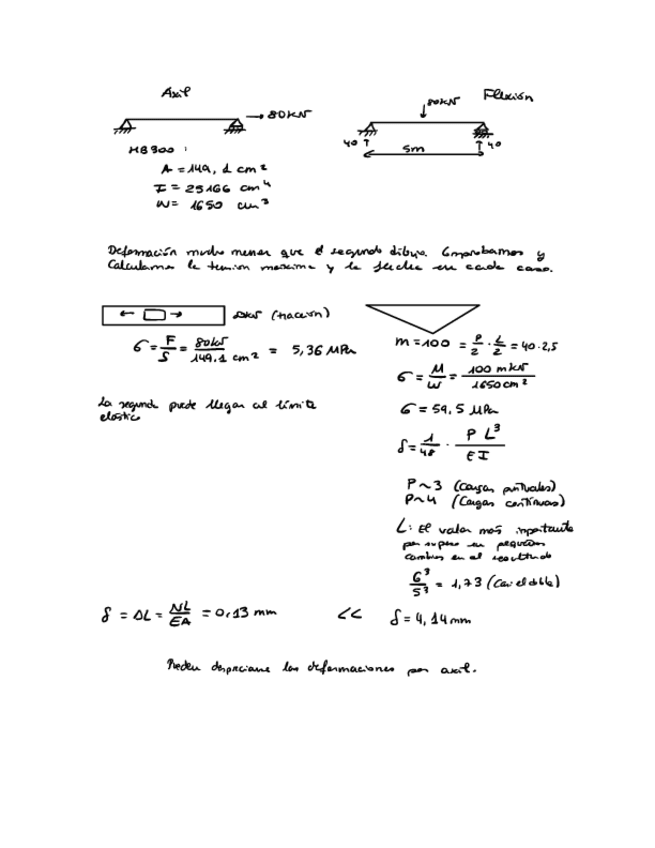 Axil
→ 80kN
HB300
A = 149,1 cm²
I = 25166 cm⁴
W = 1650 cm³
Flexión
80kN
40 ↑ ↑ 40
5m
Deformación mucho menor que el segundo dibujo. Comprobamos y
Calculamos la tension maxima y la flecha en cada caso.
← → 80kN (tracción)
σ = F/S = 80kN/149,1 cm² = 5,36 MPa
La segunda puede llegar al límite
elástico
m = 100 = P/2 · L/2 = 40 · 2,5
σ = M/W = 100 mkN/1650cm²
σ = 59,5 MPa
δ = 1/48 · P L³/EI
P ~ 3 (Cargas puntuales)
P ~ 4 (Cargas contínuas)
L: El valor más importante
por supone un pequeños
cambios en el resultado
6³/5³ = 1,73 (Casi el doble)
δ = ΔL = NL/EA = 0,13 mm << δ = 4,14mm
Pueden despreciarse las deformaciones por axil.